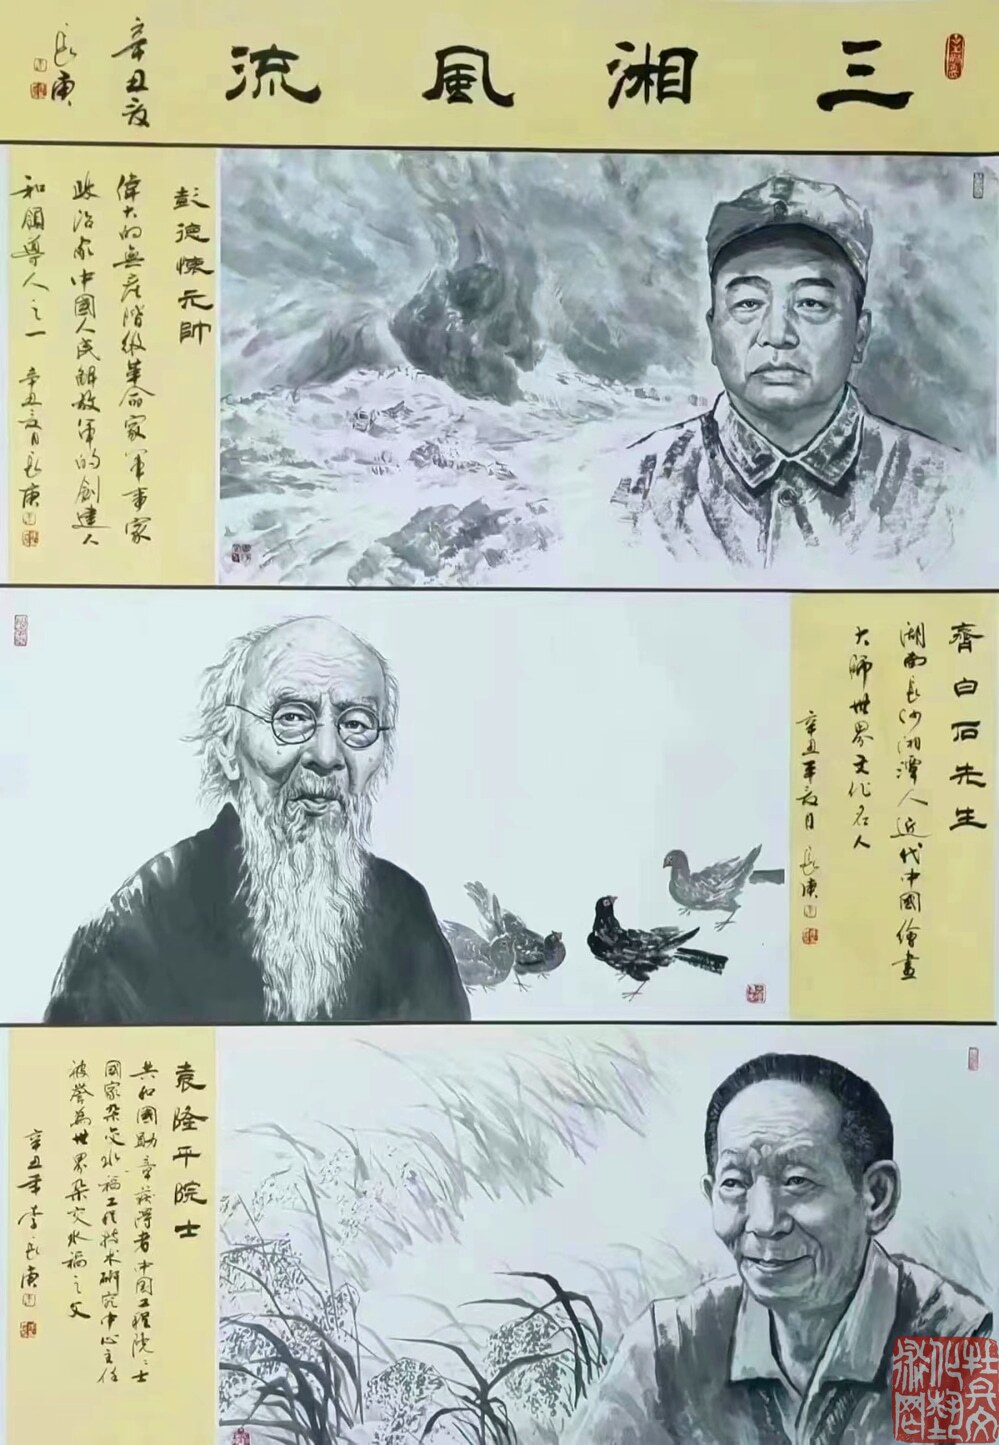 三湘風流
辛丑夏
長庚
彭德懷元帥
偉大的無産階級革命家軍事家
政治家中國人民解放军的創建人
和領導人之一 辛丑夏月長庚
齊白石先生
湖南長沙湘潭人近代中國繪畫
大师世界文化名人
辛丑年夏月 長庚
袁隆平院士
共和國勋章获得者中国工程院院士
國家杂交水稻工程技术研究中心主任
被誉為世界杂交水稻之父
辛丑年李長庚